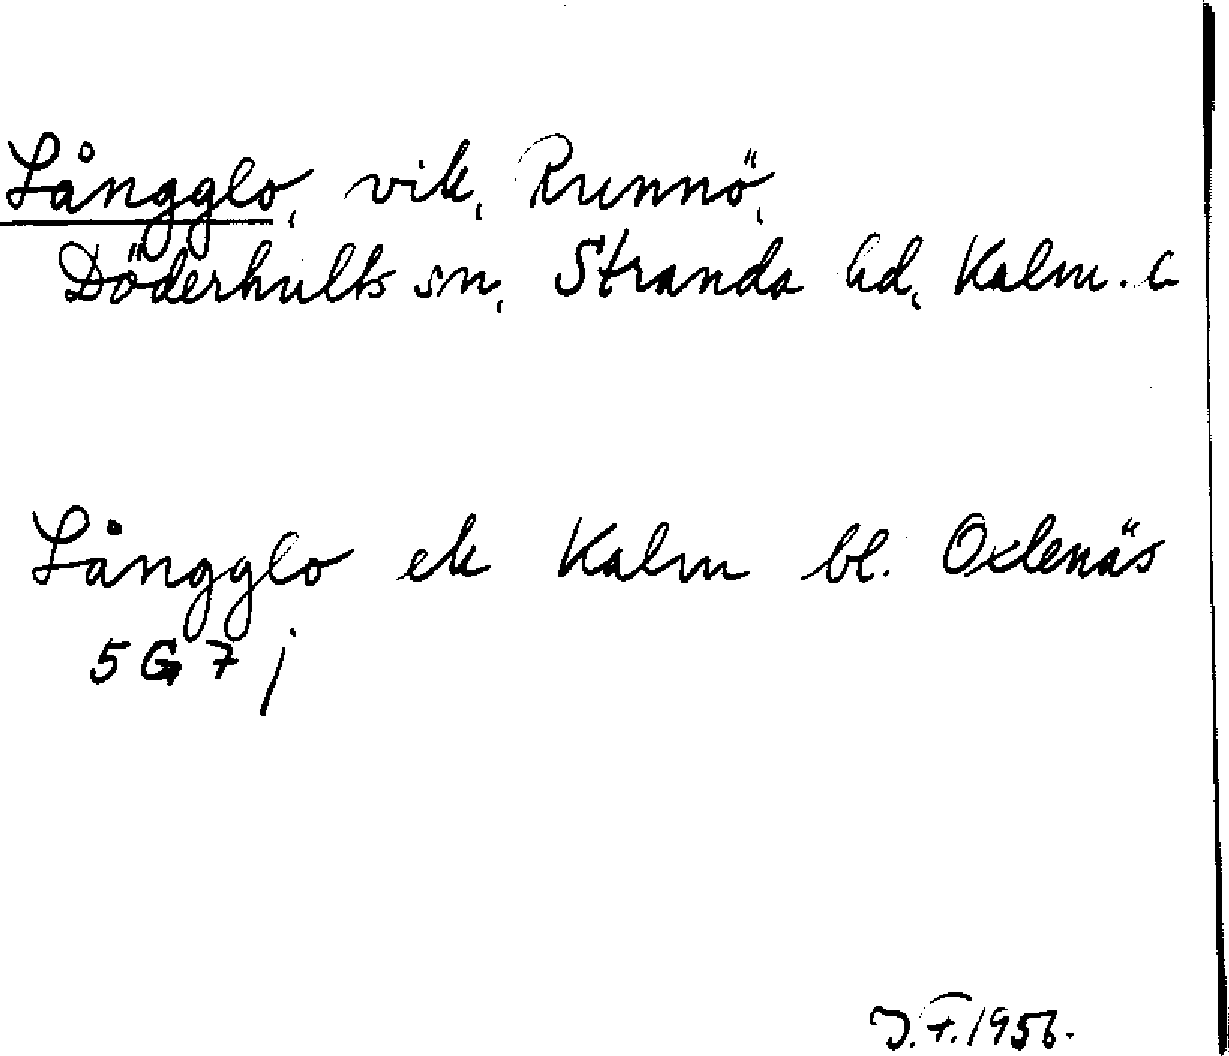 Långglo, vik, Runnö,
Döderhults sn, Stranda hd, Kalm. l
Långglo ek Kalm bl. Oxlenäs
5 G 7 j
J.F. 1956.